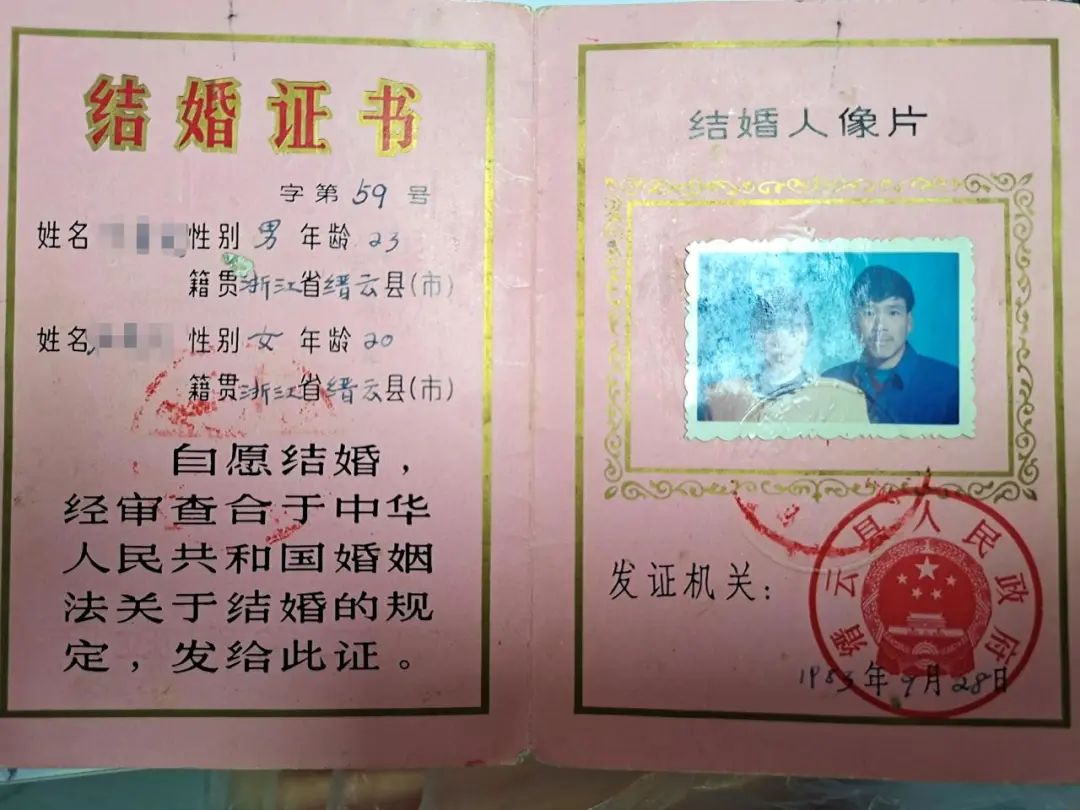 结婚证书
字第59号
姓名 性别 男 年龄 23
籍贯浙江省缙云县(市)
姓名 性别 女 年龄 20
籍贯浙江省缙云县(市)
自愿结婚，
经审查合于中华
人民共和国婚姻
法关于结婚的规
定，发给此证。
结婚人像片
发证机关：
缙云县人民政府
1983年9月28日